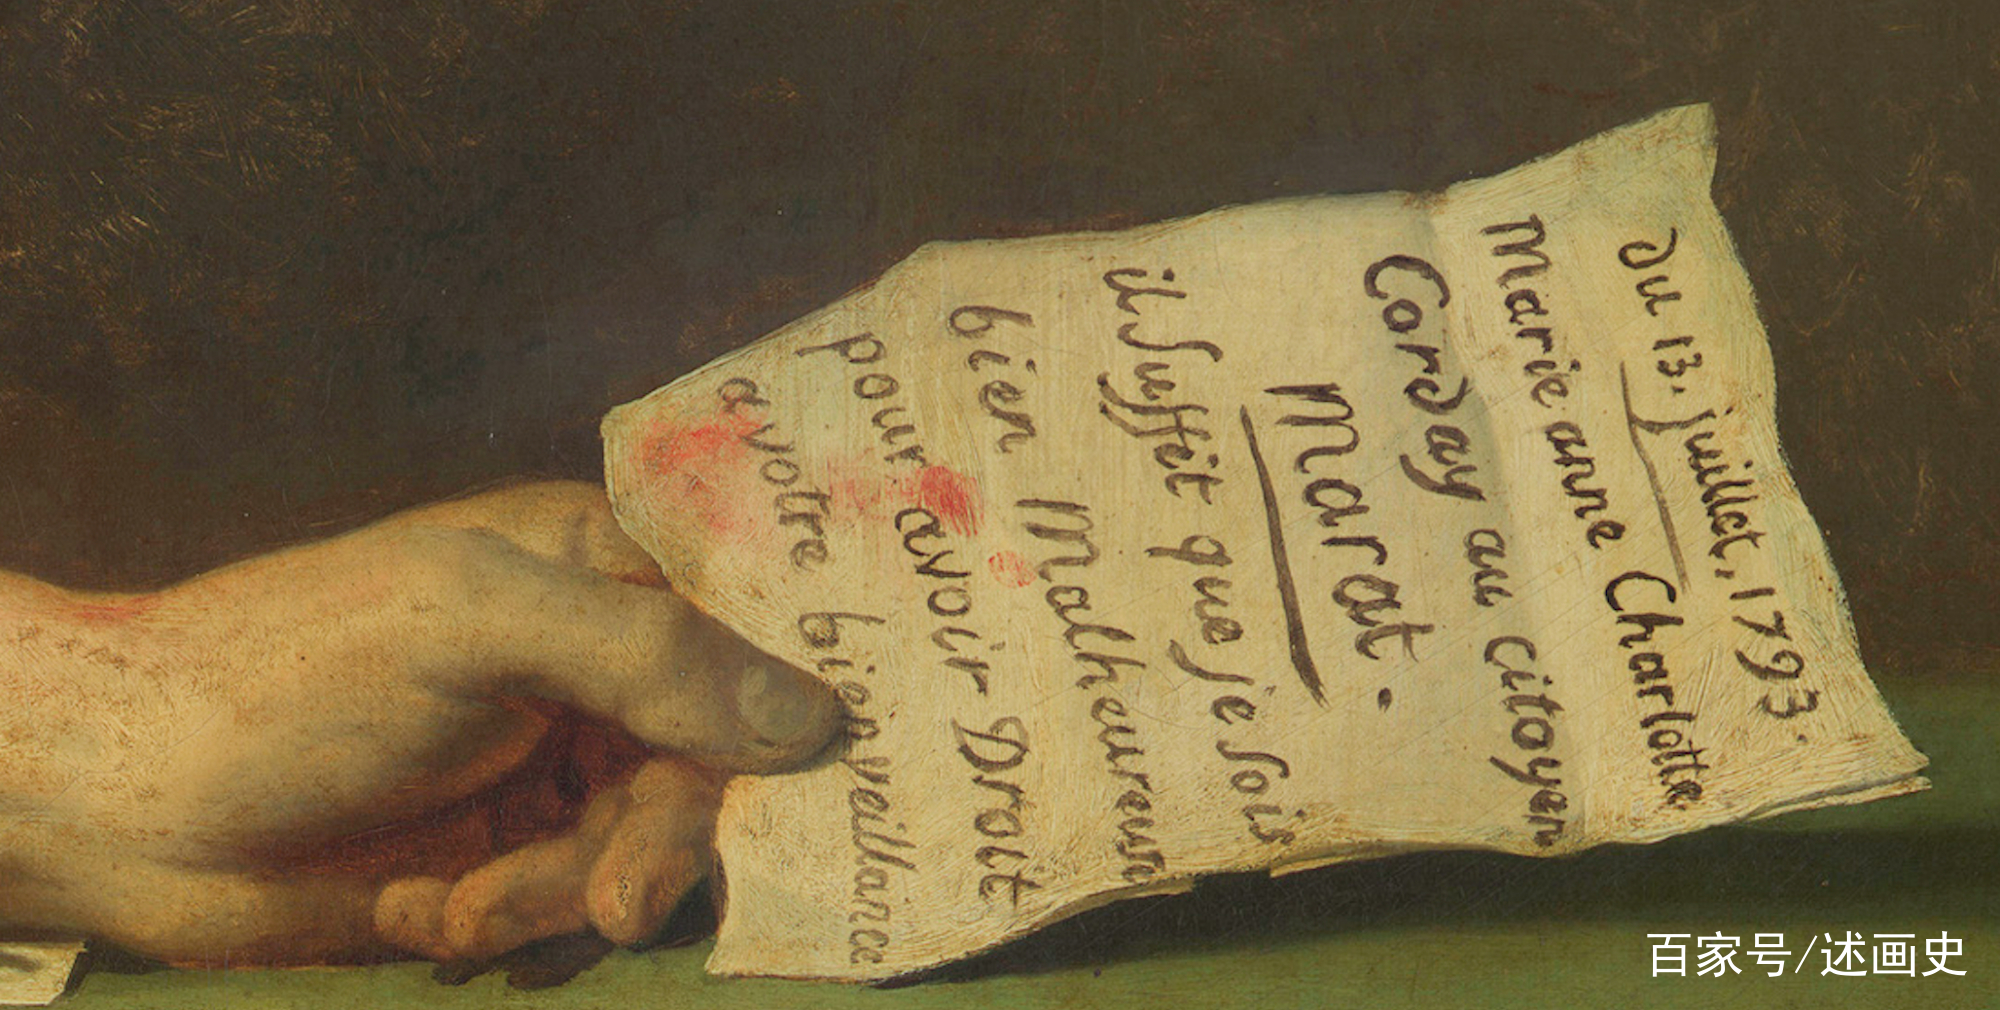 Du 13. juillet, 1793.
Marie anne Charlotte
Corday au citoyen
Marat.
il suffit que je sois
bien Malheureuse
pour avoir Droit
a votre bienveillance
百家号/述画史